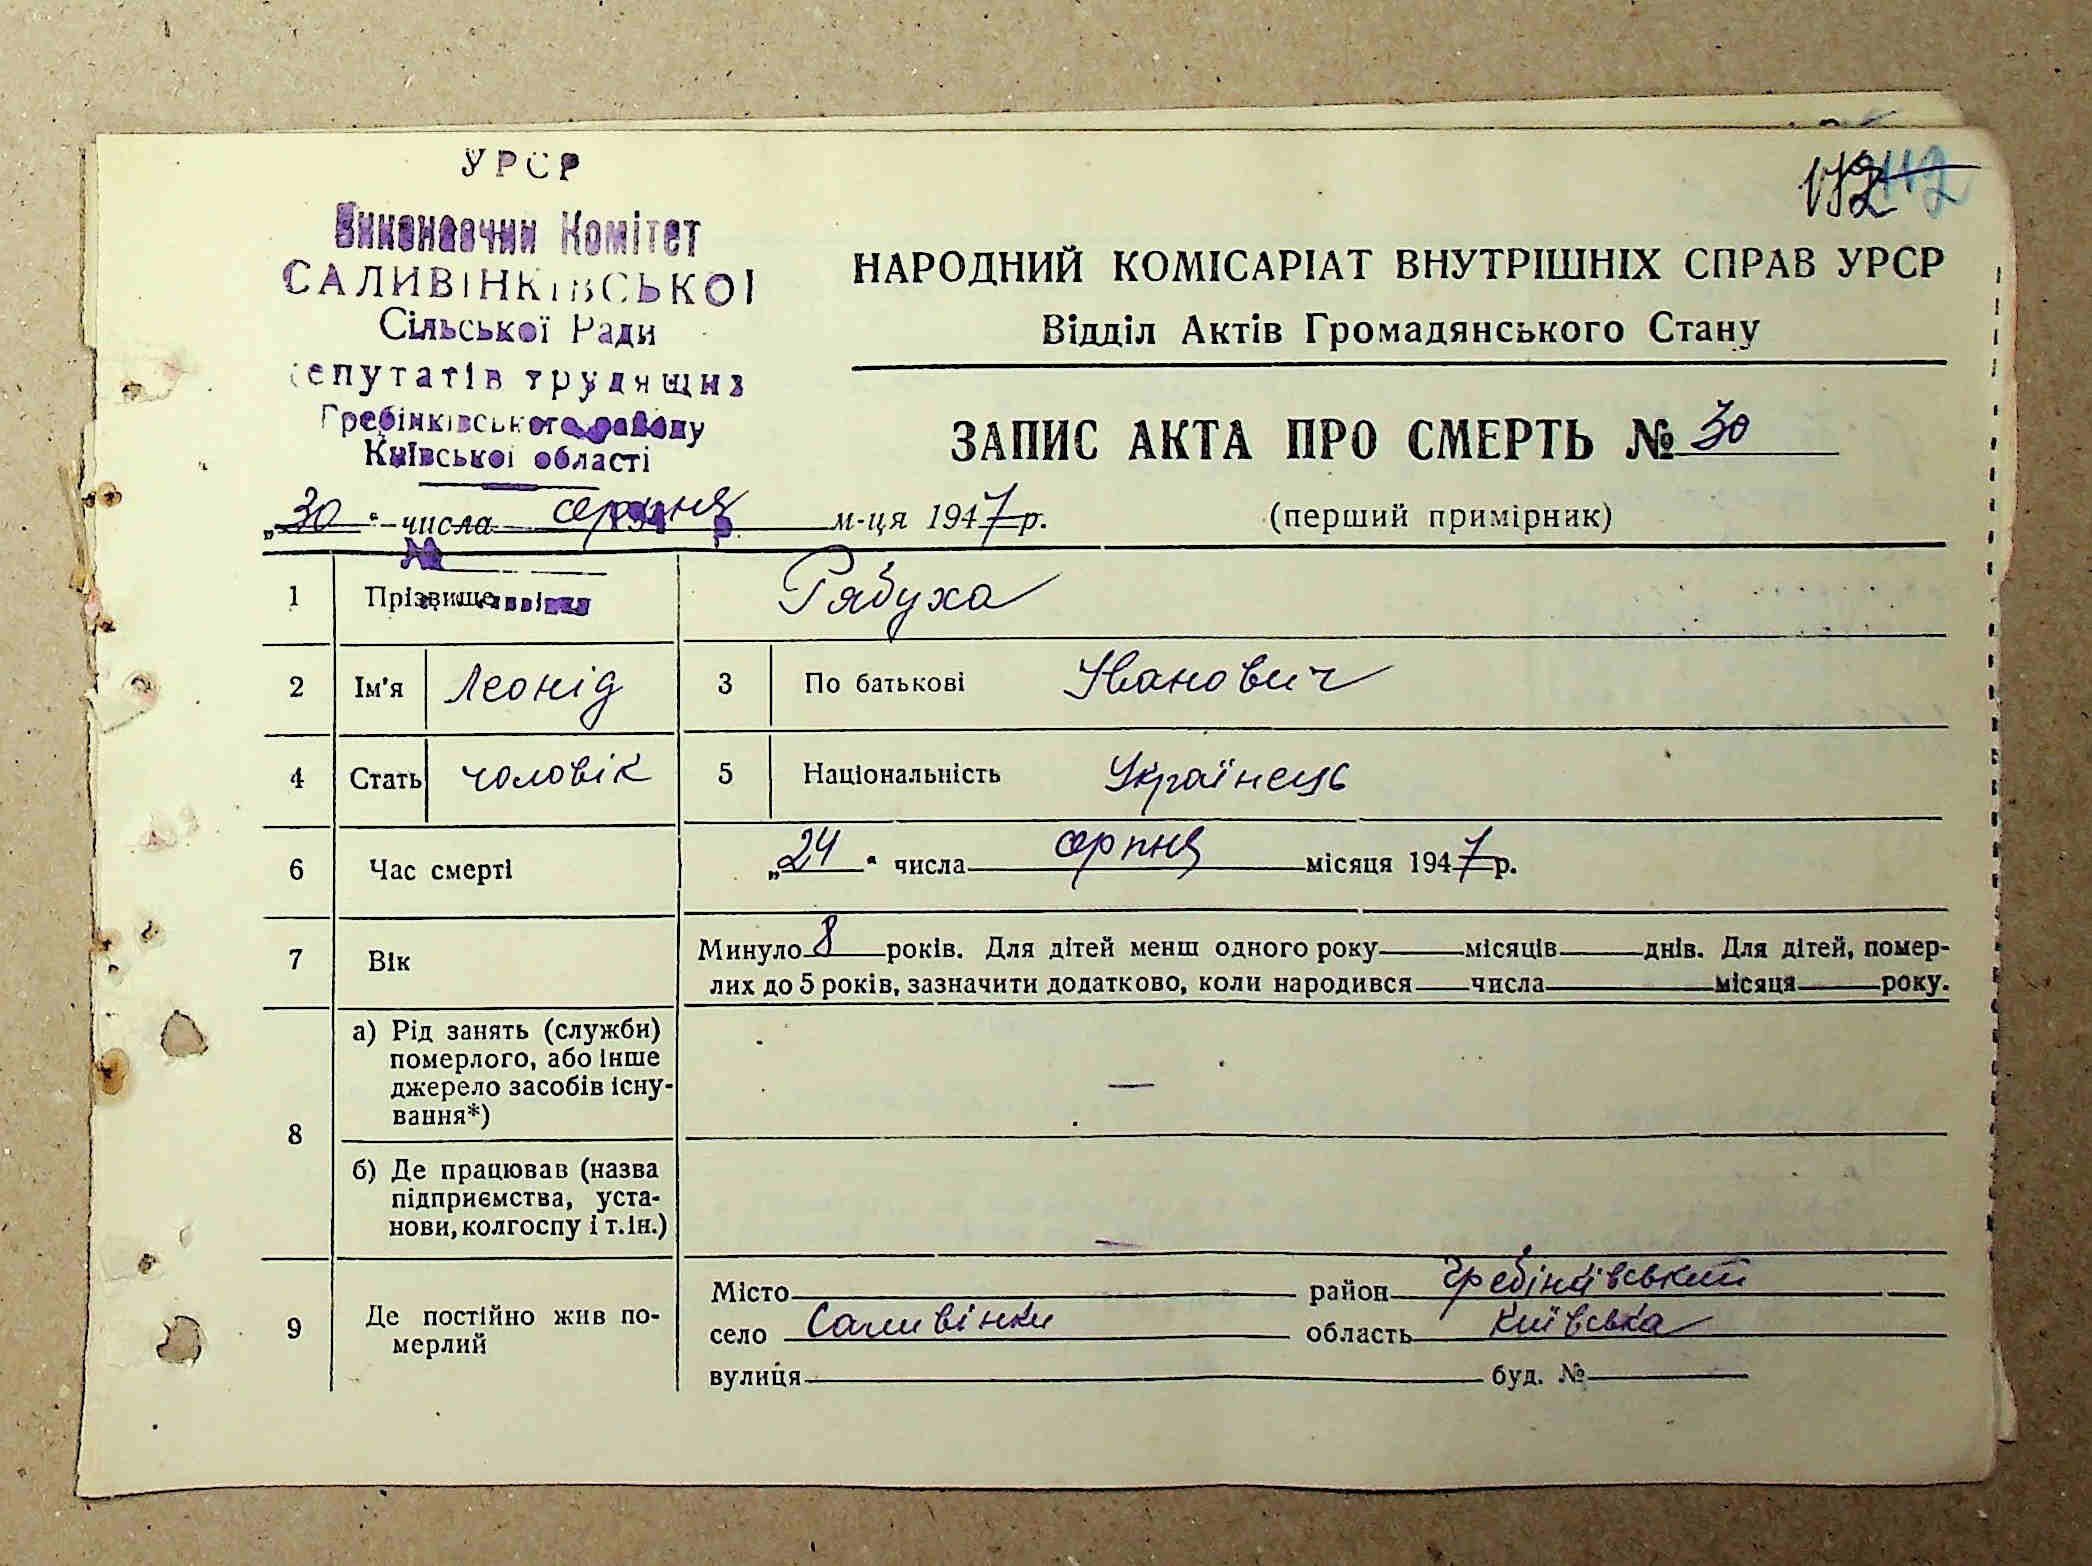 112
УРСР
Виконавчий Комітет
САЛИВІНКІВСЬКОЇ
Сільської Ради
епутатів трудящих
Гребінківського району
Київської області
НАРОДНИЙ КОМІСАРІАТ ВНУТРІШНІХ СПРАВ УРСР
Відділ Актів Громадянського Стану
ЗАПИС АКТА ПРО СМЕРТЬ № 30
„30“ числа серпня м-ця 1947 р.
(перший примірник)
1 Прізвище Рябуха
2 Ім'я Леонід 3 По батькові Іванович
4 Стать чоловік 5 Національність Українець
6 Час смерті „24“ числа серпня місяця 1947 р.
7 Вік Минуло 8 років. Для дітей менш одного року місяців днів. Для дітей, помер-
лих до 5 років, зазначити додатково, коли народився числа місяця року.
8 а) Рід занять (служби)
померлого, або інше
джерело засобів існу-
вання*) —
б) Де працював (назва
підприємства, уста-
нови, колгоспу і т. ін.) —
9 Де постійно жив по-
мерлий
Місто район Гребінківський
село Саливінки область Київська
вулиця буд. №